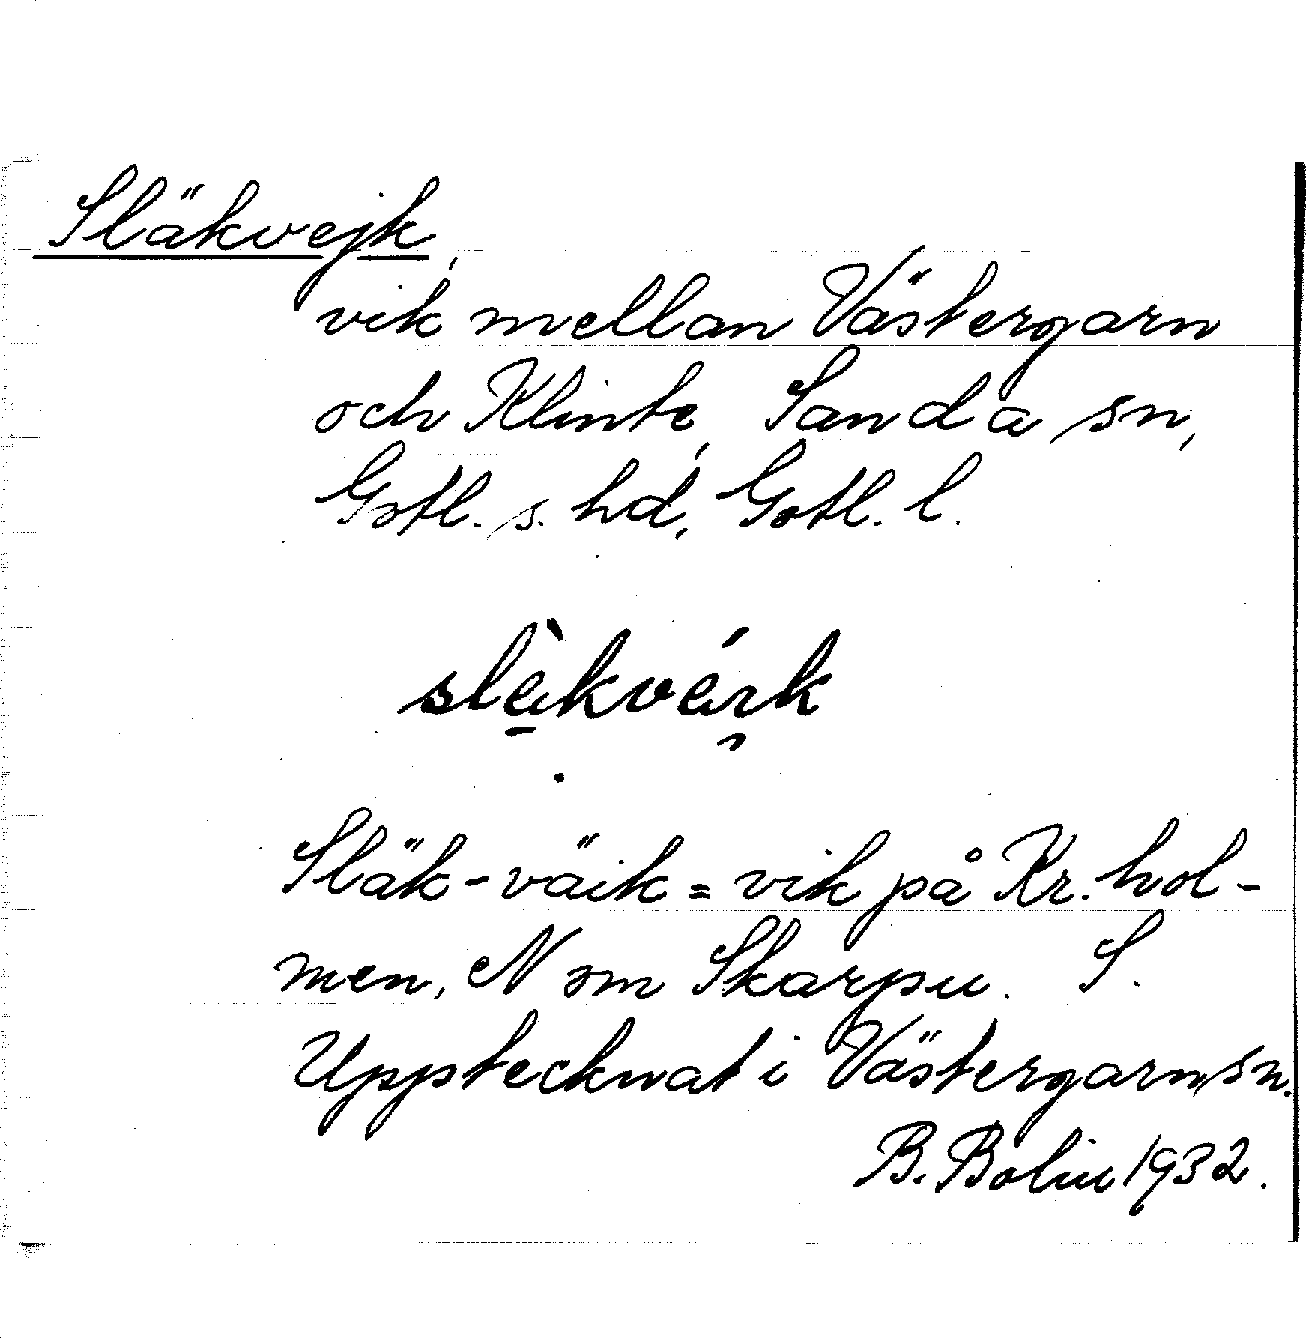 Släkvejk,
vik mellan Västergarn
och Klinte, Sanda sn,
Gotl. s. hd, Gotl. l.
Släk-väik = vik på Kr. hol-
men, N om Skarpu. S.
Upptecknat i Västergarn, sn.
B. Bolin 1932.